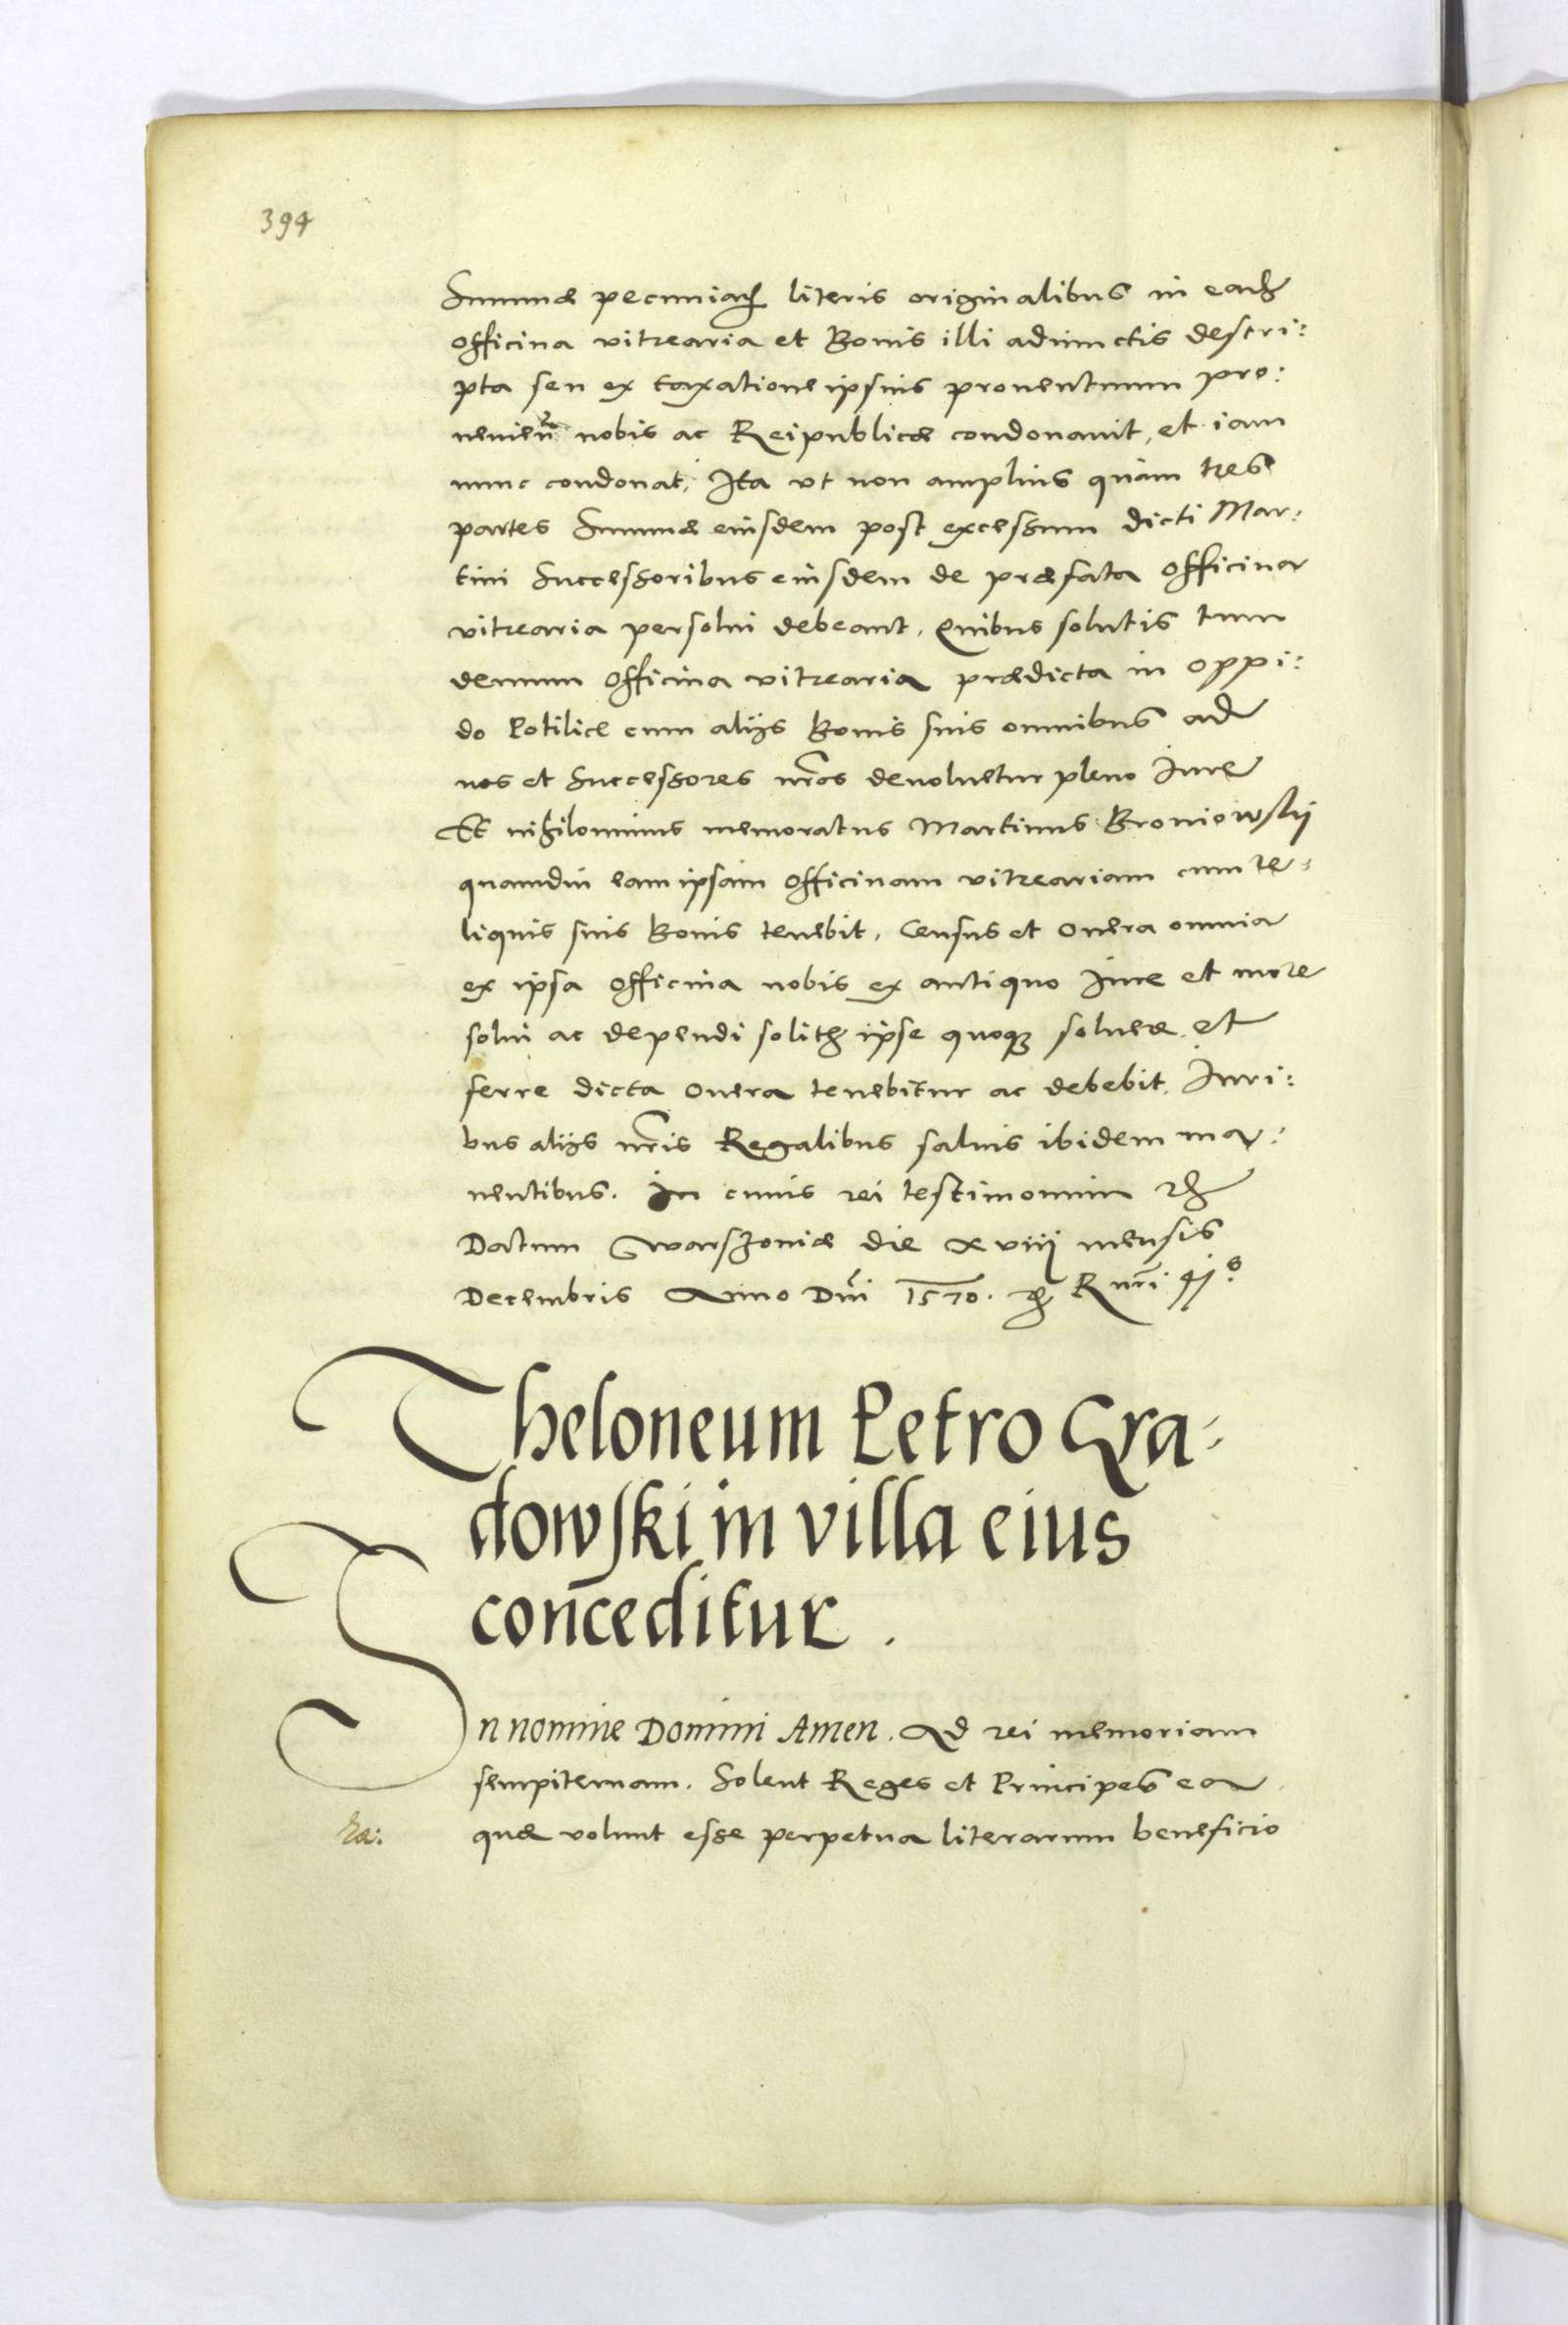 394
Summæ pecuniar literis originalibus in ead
officina vitrearia et Bonis illi adiunctis descri:
pta seu ex taxatione ipsius prouentuum pro:
uenien nobis ac Reipublicæ condonauit, et iam
nunc condonat, Ita vt non amplius quàm tres
partes Summæ eiusdem post excessum dicti Mar:
tini Successoribus eiusdem de præfata officina
vitrearia persolui debeant. Quibus solutis tum
demum officina vitrearia prædicta in oppi:
do Potilice cum alijs Bonis suis omnibus ad
nos et Successores nros deuoluetur pleno Iure
Et nihilominus memoratus Martinus Broniowskij
quamdiu eam ipsam officinam vitreariam cum re:
liquis suis Bonis tenebit, Census et onera omnia
ex ipsa officina nobis ex antiquo Iure et more
solui ac dependi solit ipse quoq soluere et
ferre dicta onera tenebitur ac debebit. Iuri:
bus alijs nris Regalibus saluis ibidem ma:
nentibus. In cuius rei testimonium
Datum Warszouiæ die xviij mensis
Decembris Anno Dni 1570. R nri 41º
Theloneum Petro Gra-
dowski in villa eius
conceditur.
In nomine Domini Amen. Ad rei memoriam
sempiternam. Solent Reges et Principes ea
quæ volunt esse perpetua literarum beneficio